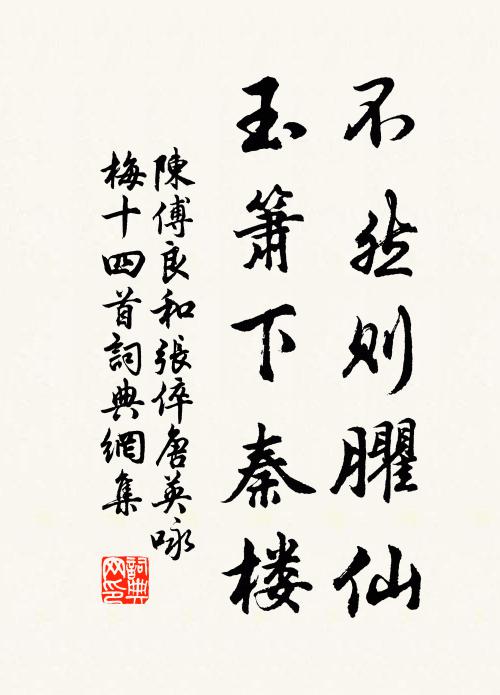 不然则臞仙
玉箫下秦楼
陳傅良和張倅唐英咏
梅十四首詞典網集
詞典网印